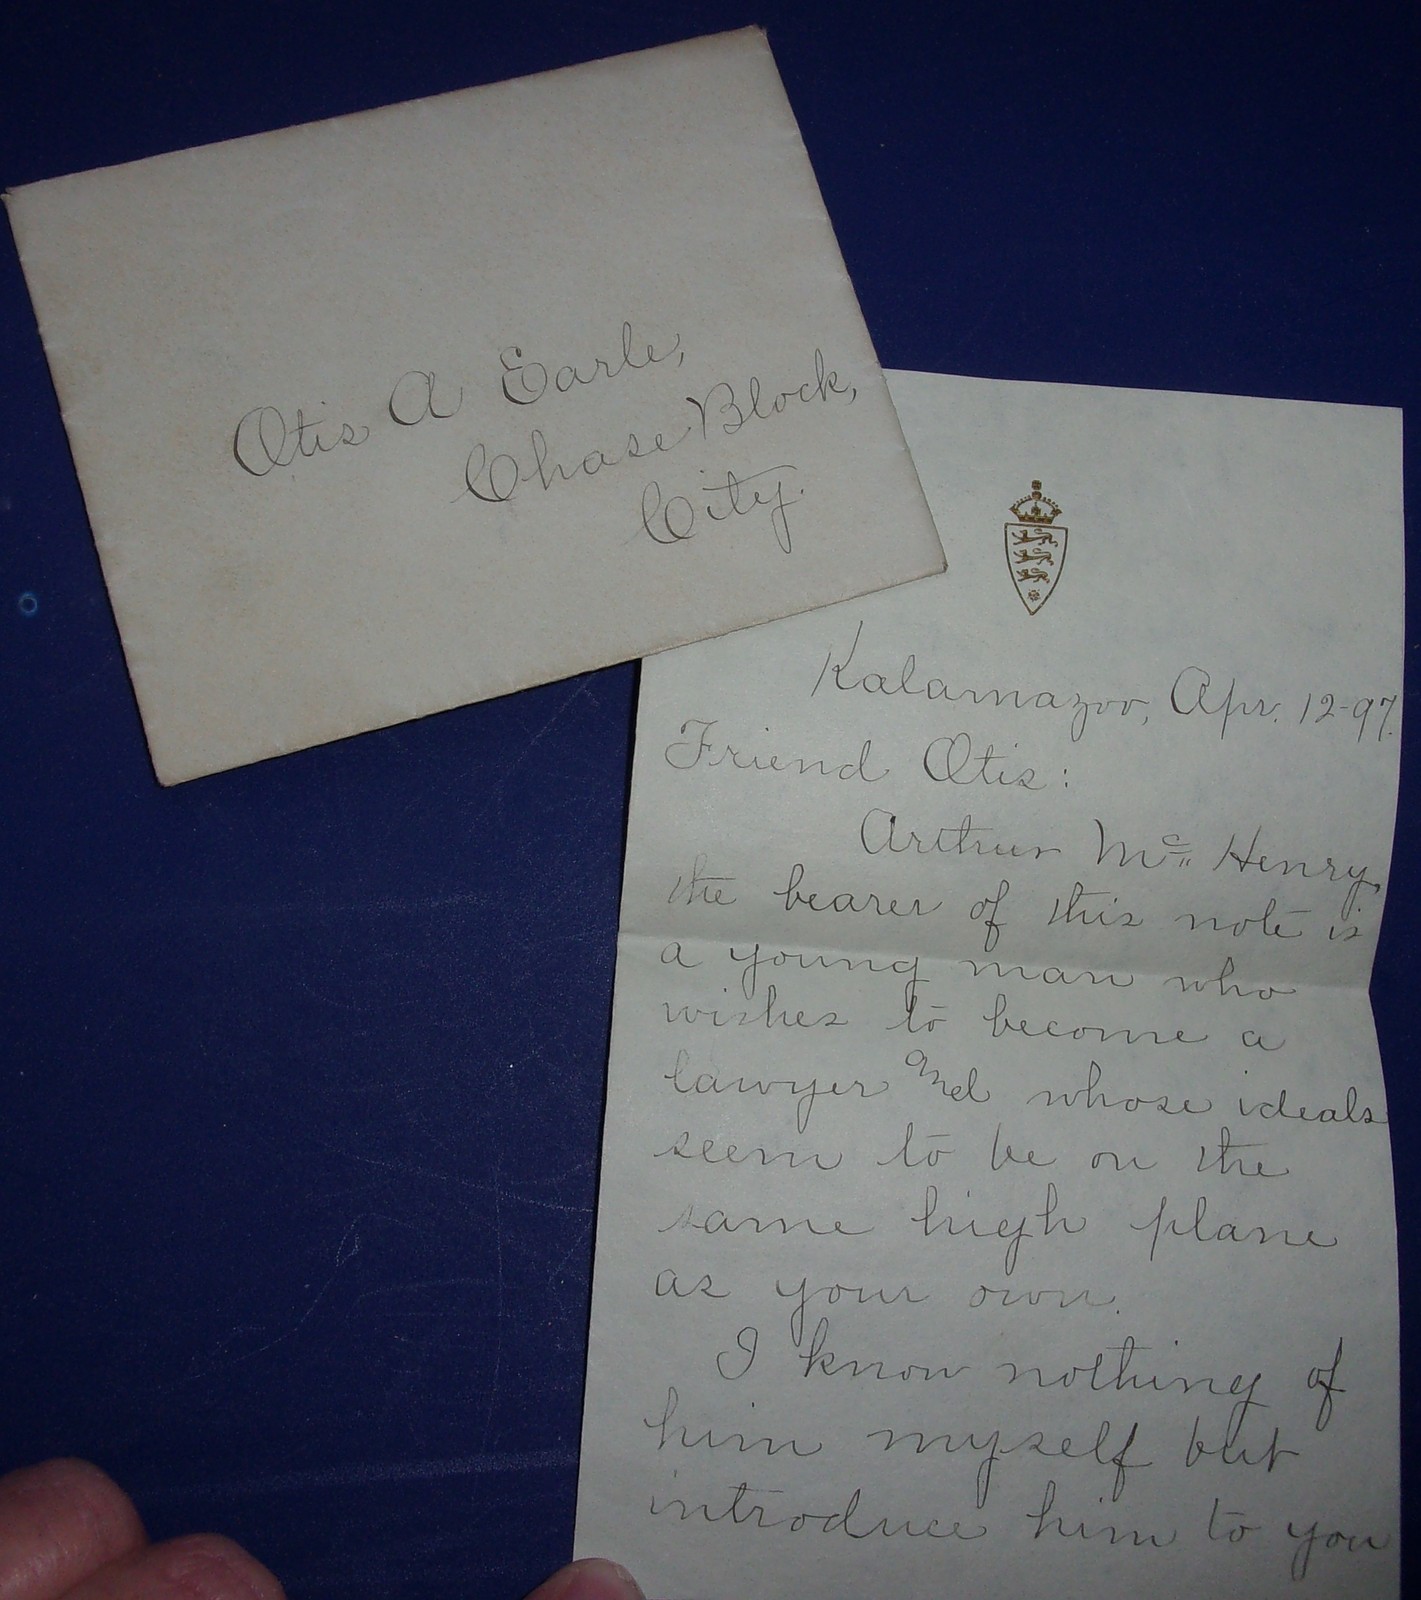 Otis A Earle,
Chase Block,
City.
Kalamazoo, Apr. 12-97.
Friend Otis:
Arthur Mc Henry,
the bearer of this note is
a young man who
wishes to become a
lawyer and whose ideals
seem to be on the
same high plane
as your own.
I know nothing of
him myself but
introduce him to you